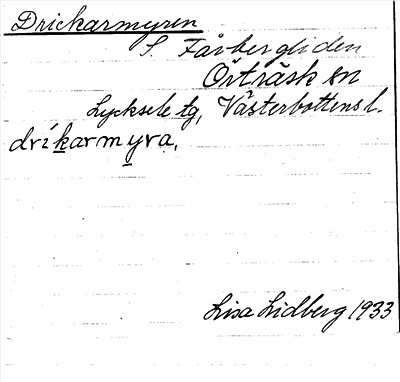 Drickarmyren
S. Fårbergliden
Örträsk sn
Lycksele tg, Västerbottens l.
dríkarmyra.
Lisa Lidberg 1933